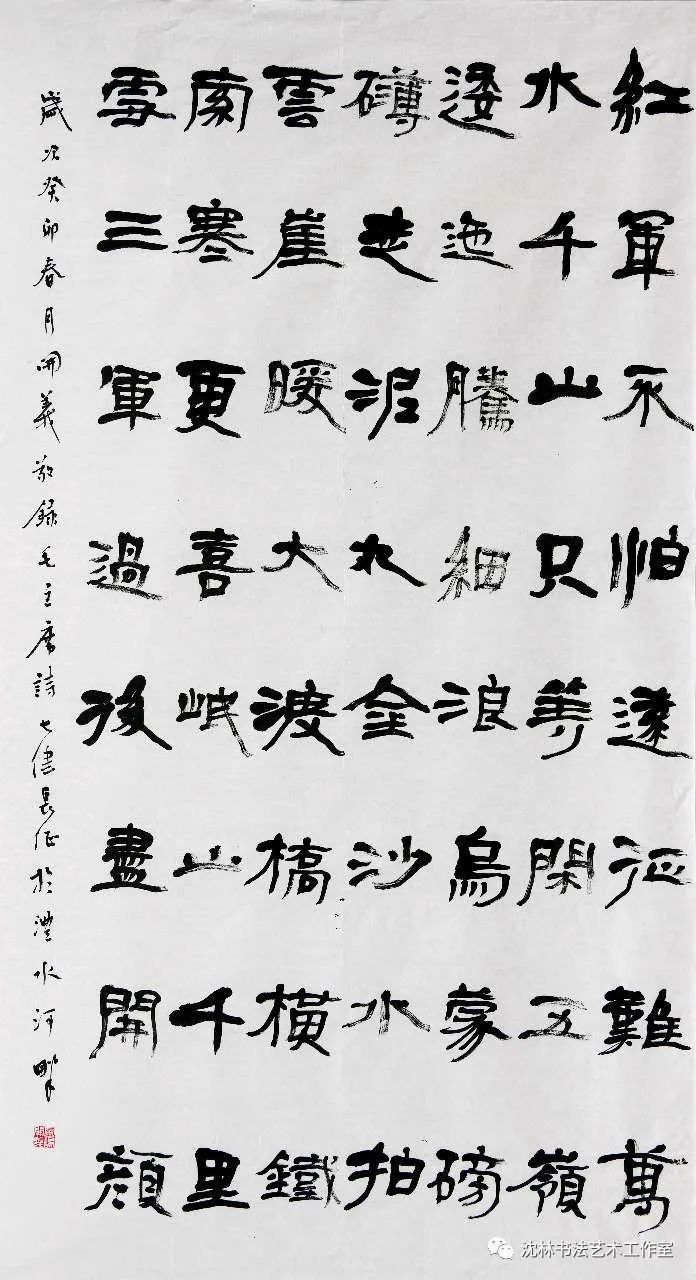 紅軍不怕遠征難萬
水千山只等閑五嶺
逶迤騰細浪烏蒙磅
礴走泥丸金沙水拍
雲崖暖大渡橋橫鐵
索寒更喜岷山千里
雪三軍過後盡開顏
歲次癸卯春月開義敬錄毛主席詩七律長征於澧水河畔
沈林书法艺术工作室